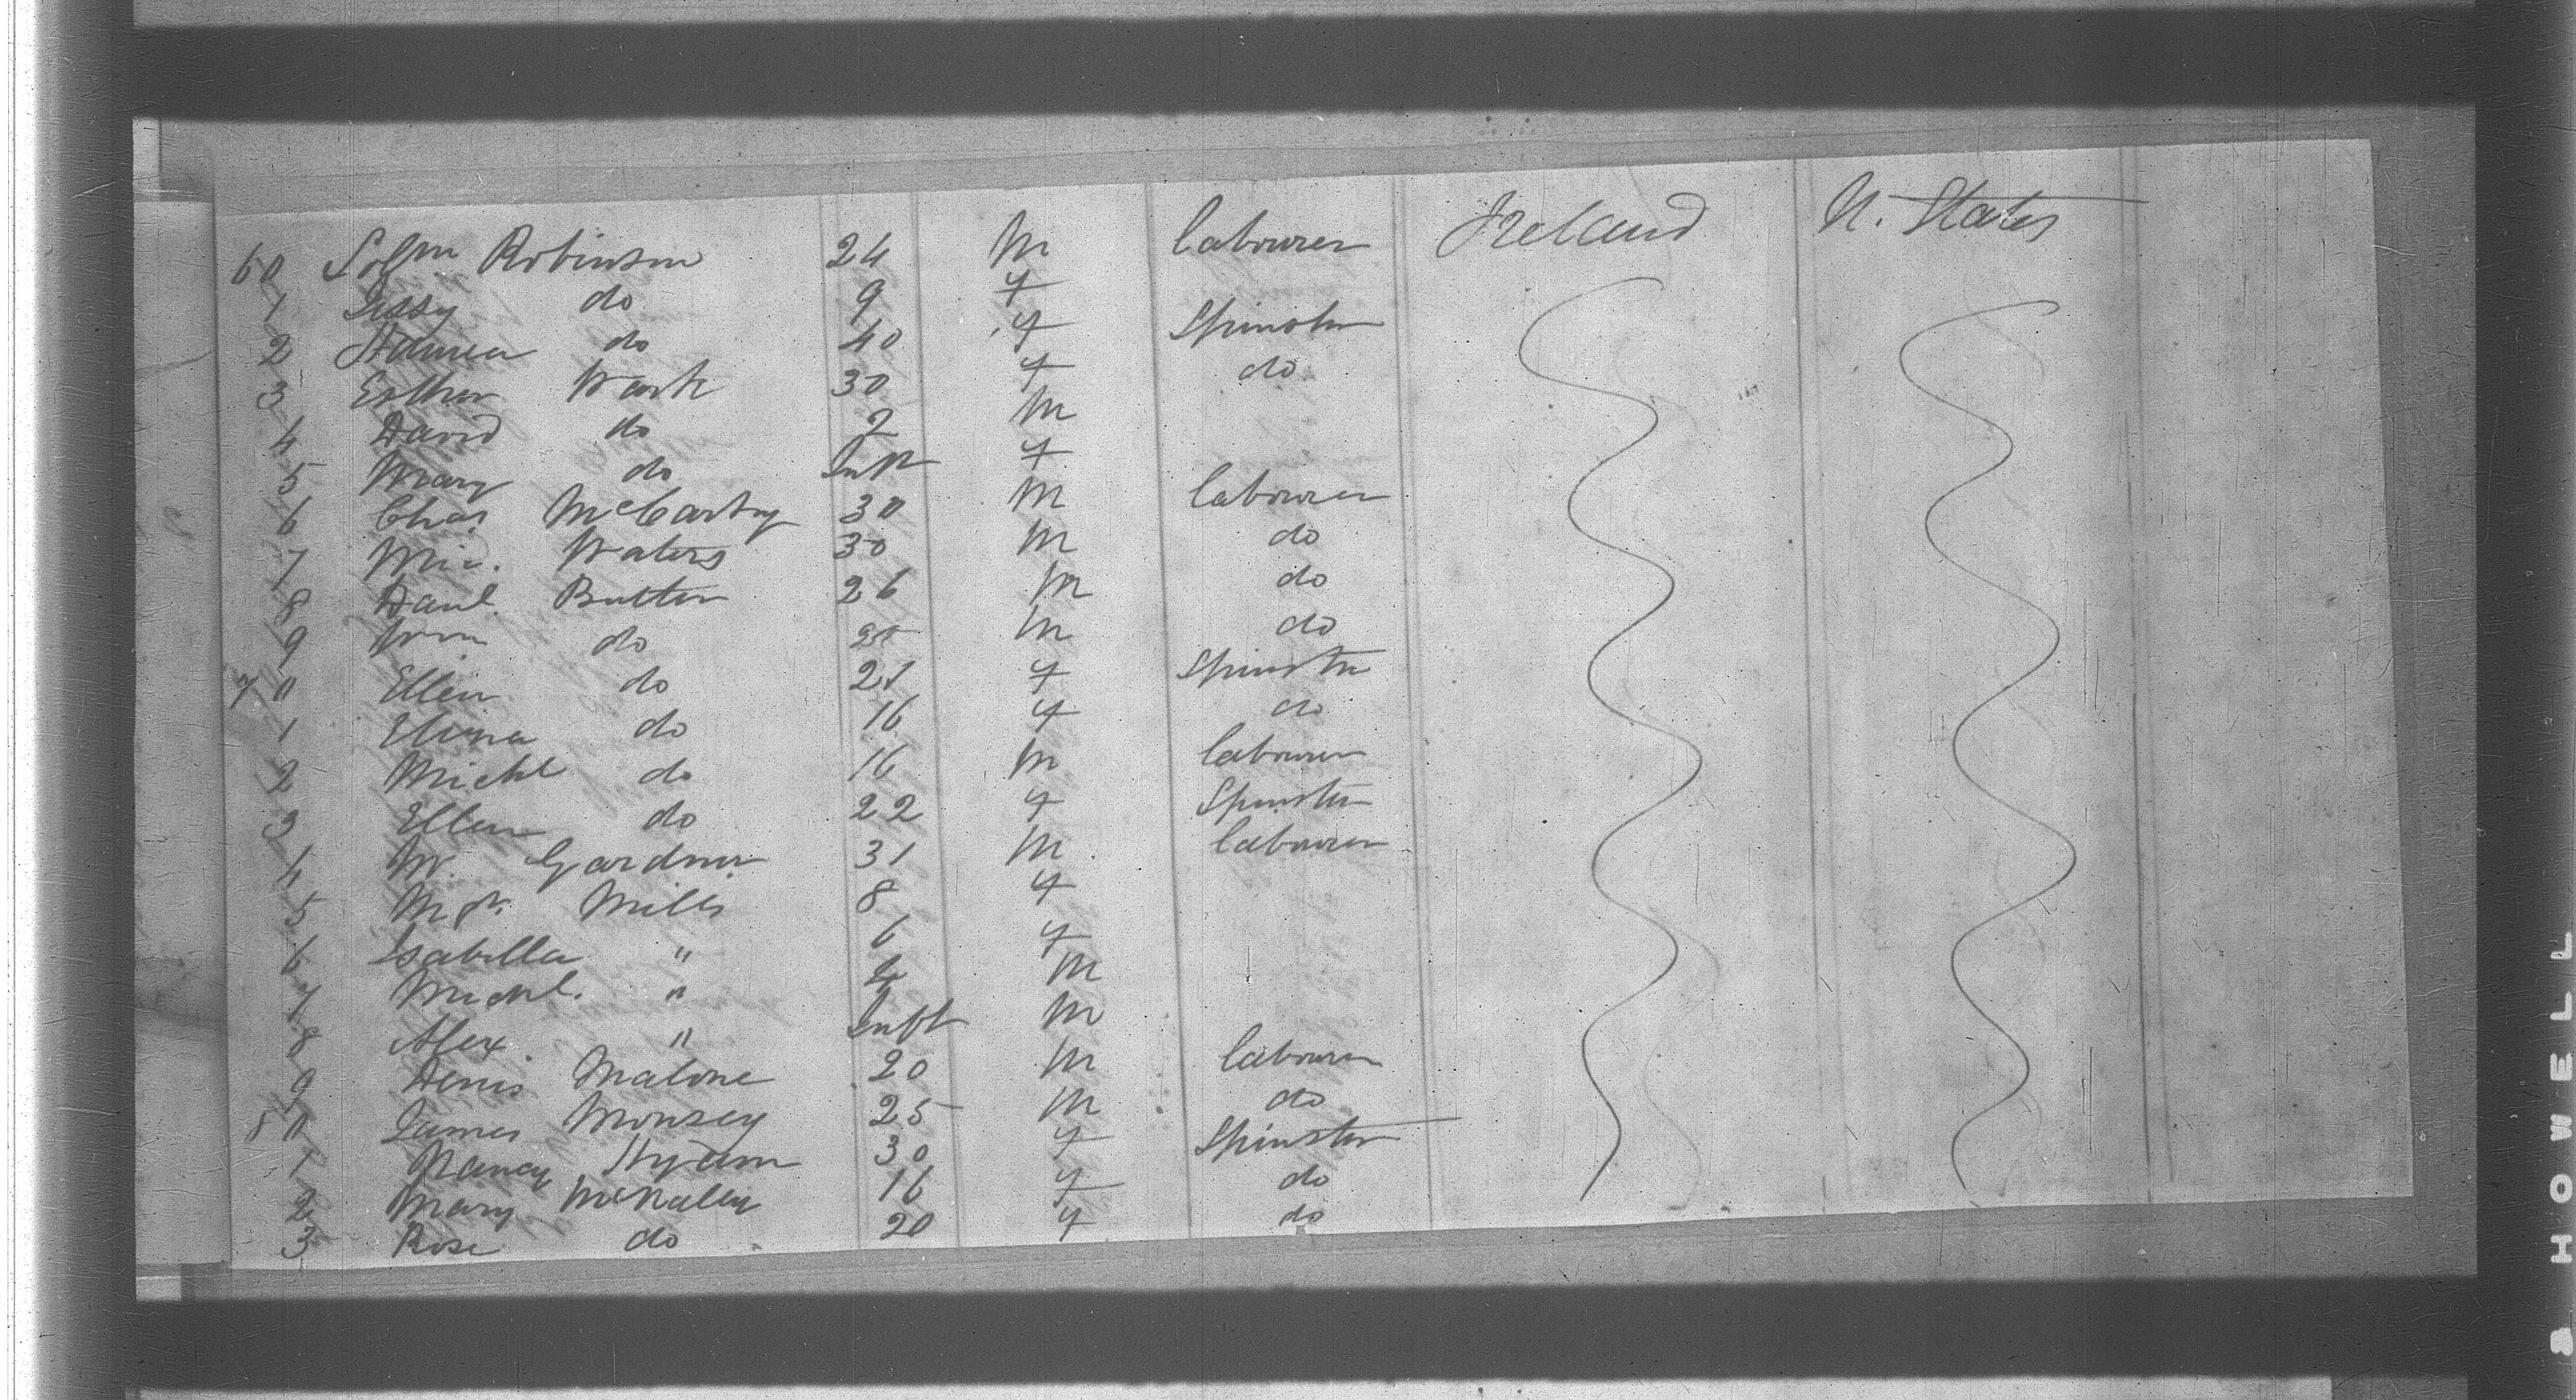 60 Solmn Robinson 24 M labourer Ireland U. States
1 Jessy do 9 f
2 Hanna do 40 f Spinster
3 Esther Wark 30 f do
4 David do 2 M
5 Mary do Inft f
6 Chas. McCarty 30 M labourer
7 Mic. Waters 30 M do
8 Danl. Butter 26 M do
9 Wm do M do
70 Ellen do 21 f Spinster
1 Eliza do 16 f do
2 Michl do 16 M labourer
3 Ellen do 22 f Spinster
4 W. Gardner 31 M labourer
5 Mgt. Mills 8 f
6 Isabella " 6 f
7 Michl. " 4 M
8 Alex. " Inft M
9 Denis Malone 20 M labourer
80 James Monsey 25 M do
1 Nancy 30 f Spinster
2 Mary McNally 16 f do
3 Rose do 20 f do
SHOWELL